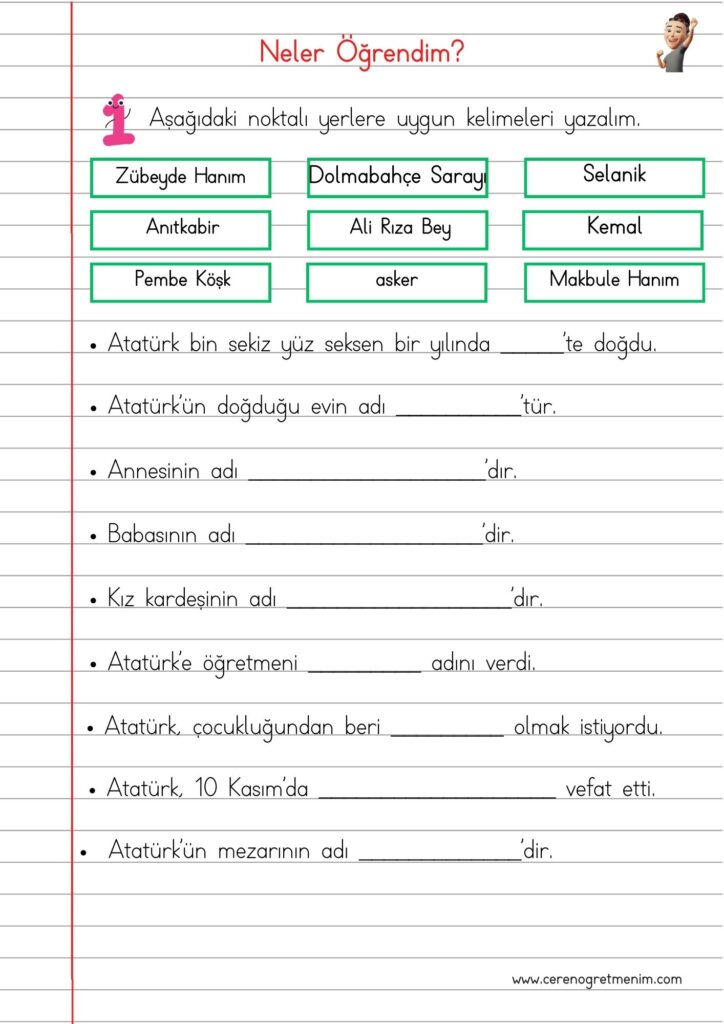 Neler Öğrendim?
1 Aşağıdaki noktalı yerlere uygun kelimeleri yazalım.
Zübeyde Hanım Dolmabahçe Sarayı Selanik
Anıtkabir Ali Rıza Bey Kemal
Pembe Köşk asker Makbule Hanım
• Atatürk bin sekiz yüz seksen bir yılında _____'te doğdu.
• Atatürk'ün doğduğu evin adı __________'tür.
• Annesinin adı ___________________'dır.
• Babasının adı ___________________'dir.
• Kız kardeşinin adı __________________'dır.
• Atatürk'e öğretmeni _________ adını verdi.
• Atatürk, çocukluğundan beri _________ olmak istiyordu.
• Atatürk, 10 Kasım'da ___________________ vefat etti.
• Atatürk'ün mezarının adı _____________'dir.
www.cerenogretmenim.com